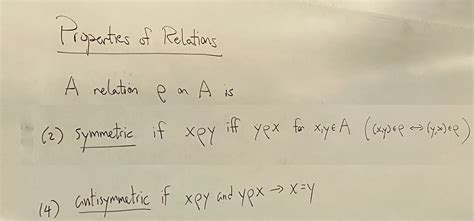 Properties of Relations
A relation ρ on A is
(2) symmetric if xρy iff yρx for x,y∈A ((x,y)∈ρ ↔ (y,x)∈ρ)
(4) antisymmetric if xρy and yρx → x=y